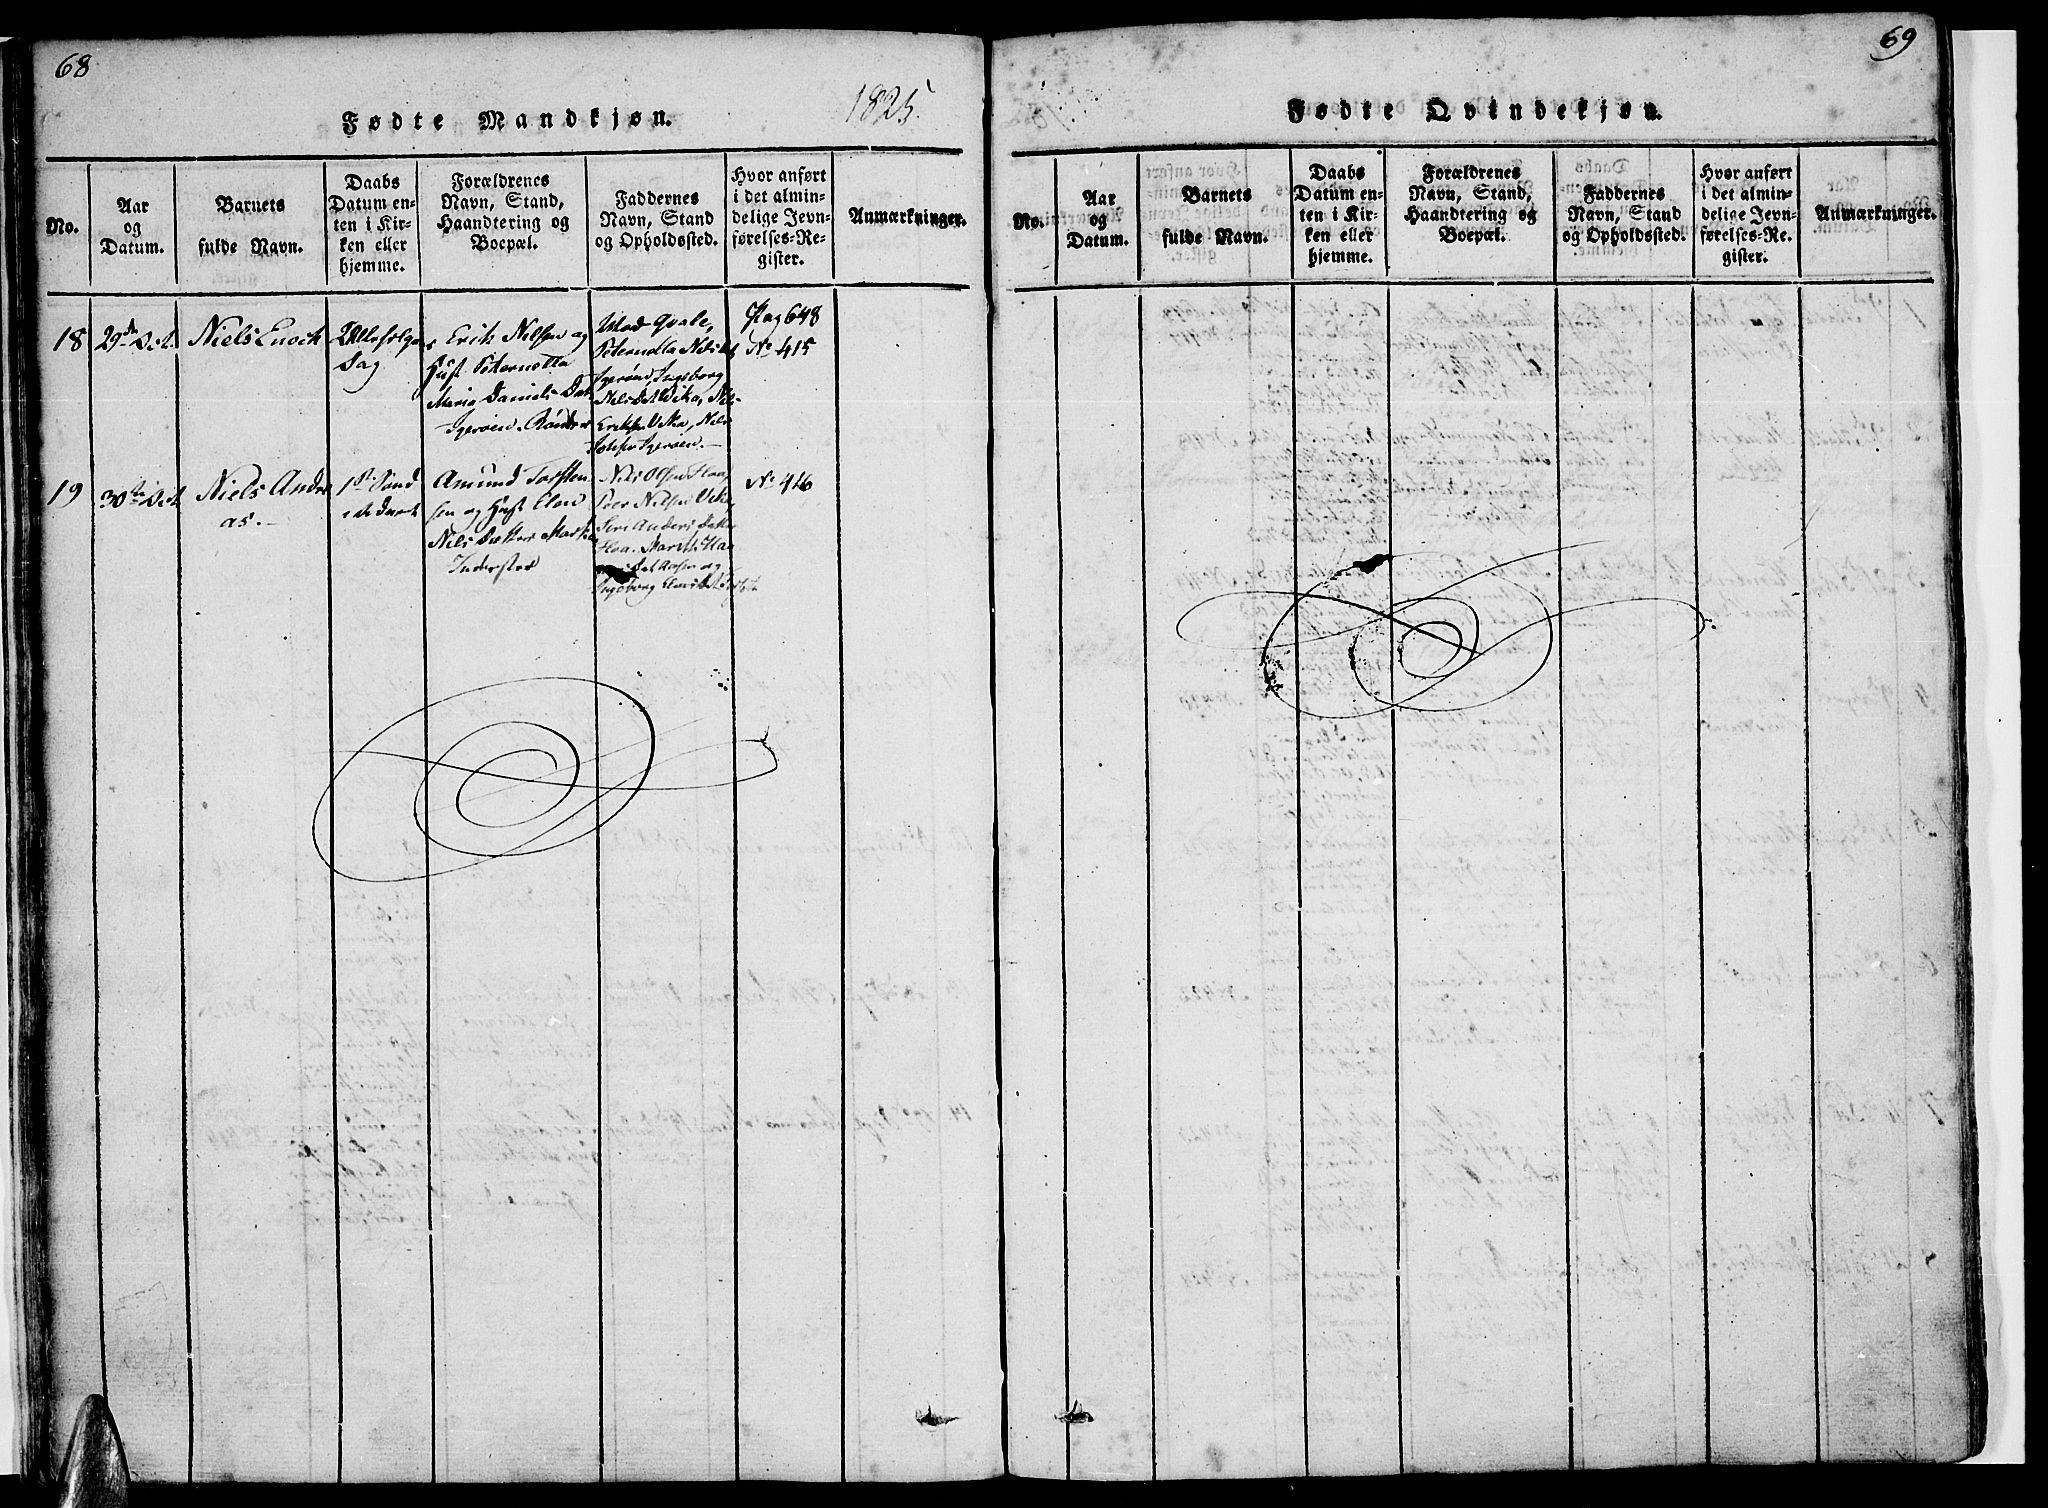 68
1825.
Fødte Mandkjøn.
No.
Aar
og
Datum.
Barnets
fulde Navn.
Daabs
Datum en-
ten i Kir-
ken eller
hjemme.
Forældrenes
Navn, Stand,
Haandtering og
Boepæl.
Faddernes
Navn, Stand
og Opholdssted.
Hvor anført
i det almin-
delige Jevn-
førelses-Re-
gister.
Anmærkninger.
18
29de Oct.
Niels Enoch
Allehelgen
Dag
Erich Nilsen og
Hust Peternella
Maria Daniels Dat
Igerøen
Peternella Nils
Igerøen, Ingeborg
Nilsdat Vika,
Eriksen Vika, Nils
Igerøen.
Pag 648
No 415
19
30te Oct
Niels Andre
as.
1st Sønd
i Advent
Amund Torsten
sen og Hust Elen
Nils Datter
Nils Olsen
Peer Nilsen Vika,
Anders Datter
Ingeborg
No 416
69
Fødte Qvindekjøn.
No.
Aar
og
Datum.
Barnets
fulde Navn.
Daabs
Datum en-
ten i Kir-
ken eller
hjemme.
Forældrenes
Navn, Stand,
Haandtering og
Boepæl.
Faddernes
Navn, Stand
og Opholdssted.
Hvor anført
i det almin-
delige Jevn-
førelses-Re-
gister.
Anmærkninger.